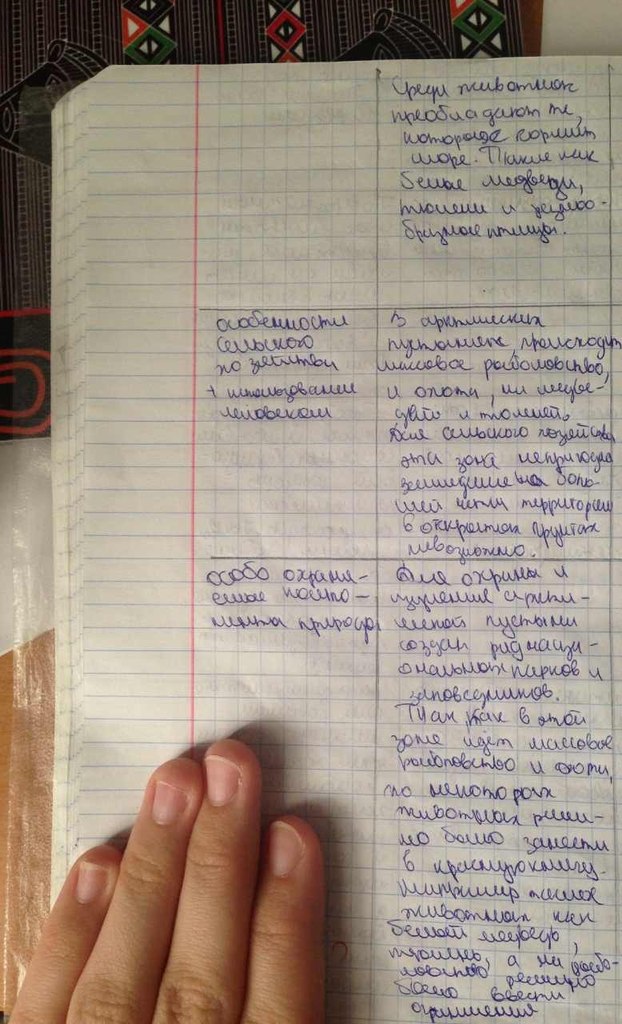 Среди животных
преобладают те,
которых кормит
море. Такие как
белые медведи,
тюлени и разно-
образные птицы.
особенности
сельского
хозяйства
+ использование
человеком
В арктических
пустынях, происходит
массовое рыболовство,
и охота, на медве-
дей и тюленей.
Для сельского хозяйства
эта зона непригодна
земледелие на боль-
шей части территории
в открытых грунтах
невозможно.
особо охраня-
емые компо-
ненты природы
Для охраны и
изучения аркти-
ческой пустыни
создан ряд наци-
ональных парков и
заповедников.
Так как в этой
зоне идет массовое
рыболовство и охота,
то некоторых
животных реши-
но было занести
в красную книгу.
таких
животных как
белый медведь,
тюлень, а на рыбо-
ловство решено
было ввести
ограничения